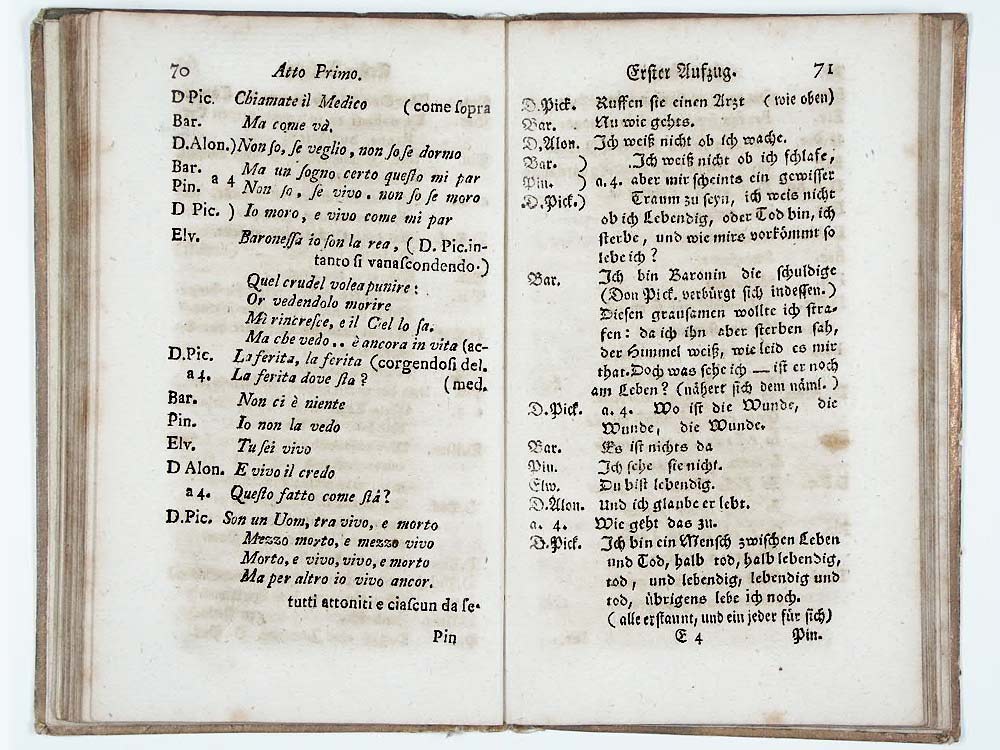 70 Atto Primo.
D Pic. Chiamate il Medico (come ſopra
Bar. Ma come và.
D.Alon.) Non ſo, ſe veglio, non ſo ſe dormo
Bar. Ma un ſogno certo queſto mi par
Pin. a 4 Non ſo, ſe vivo. non ſo ſe moro
D Pic. ) Io moro, e vivo come mi par
Elv. Baroneſſa io ſon la rea, ( D. Pic.in-
tanto ſi vanaſcondendo.)
Quel crudel volea punire:
Or vedendolo morire
Mi rincreſce, e il Ciel lo ſa.
Ma che vedo.. è ancora in vita (ac-
D.Pic. La ferita, la ferita (corgendoſi del.
a 4. La ferita dove ſta? (med.
Bar. Non ci è niente
Pin. Io non la vedo
Elv. Tu ſei vivo
D Alon. E vivo il credo
a 4. Queſto fatto come ſtà?
D.Pic. Son un Uom, tra vivo, e morto
Mezzo morto, e mezzo vivo
Morto, e vivo, vivo, e morto
Ma per altro io vivo ancor.
tutti attoniti e ciaſcun da ſe-
Pin
Erſter Aufzug. 71
D.Pick. Ruffen ſie einen Arzt (wie oben)
Bar. Nu wie gehts.
D.Alon. Ich weiß nicht ob ich wache.
Bar. ) .Ich weiß nicht ob ich ſchlafe,
Pin. ) a. 4. aber mir ſcheints ein gewiſſer
D.Pick.) Traum zu ſeyn, ich weis nicht
ob ich Lebendig, oder Tod bin, ich
ſterbe, und wie mirs vorkömmt ſo
lebe ich?
Bar. Ich bin Baronin die ſchuldige
(Don Pick. verbürgt ſich indeſſen.)
Dieſen grauſamen wollte ich ſtra-
fen: da ich ihn aber ſterben ſah,
der Himmel weiß, wie leid es mir
that. Doch was ſehe ich — iſt er noch
am Leben? (nähert ſich dem näml.)
D.Pick. a. 4. Wo iſt die Wunde, die
Wunde, die Wunde.
Bar. Es iſt nichts da
Pin. Ich ſehe ſie nicht.
Elw. Du biſt lebendig.
D.Alon. Und ich glaube er lebt.
a. 4. Wie geht das zu.
D.Pick. Ich bin ein Menſch zwiſchen Leben
und Tod, halb tod, halb lebendig,
tod, und lebendig, lebendig und
tod, übrigens lebe ich noch.
( alle erſtaunt, und ein jeder für ſich)
E 4 Pin.